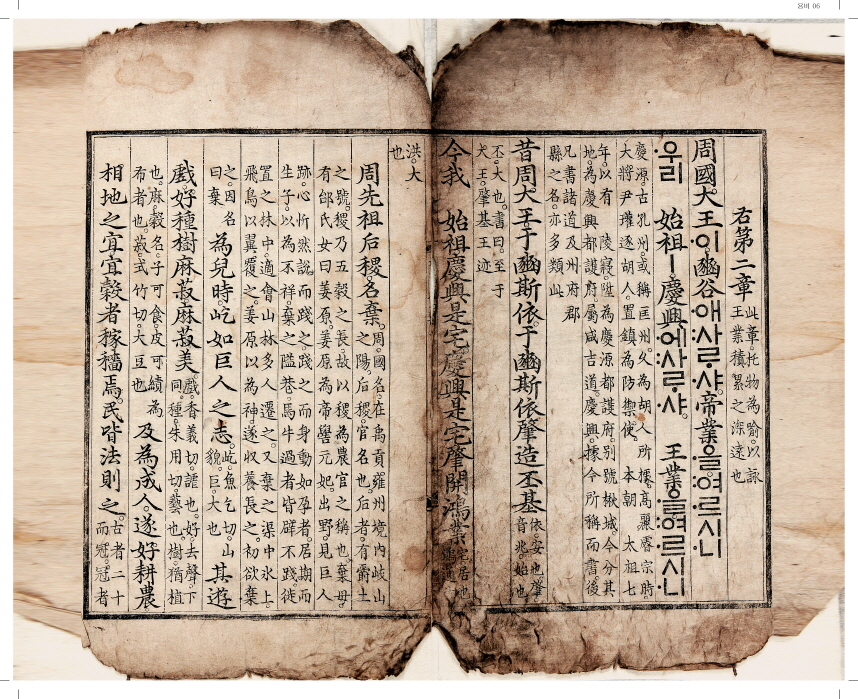 용비 06
右第二章
此章托物為喻以詠
王業積累之深遠也
周國大王이豳谷애사ᄅᆞ샤帝業을여르시니
우리 始祖ㅣ慶興에사ᄅᆞ샤 王業을여르시니
慶源古孔州或稱匡州久為胡人所據高麗睿宗時
大將尹瓘逐胡人置鎮為防禦使 本朝 太祖七
年以有 陵寢陞為慶源都護府別號楸城今分其
地為慶興都護府屬咸吉道慶興據今所稱而書後
凡書諸道及州府郡
縣之名亦多類此
昔周大王于豳斯依于豳斯依肇造丕基
依安也肇
音兆始也
丕大也書曰至于
大王肇基王迹
今我 始祖慶興是宅慶興是宅肇開鴻業
宅居也
洪大
也
周先祖后稷名棄
周國名在禹貢雍州境內岐山
之陽后稷官名也后者有爵土
之號稷乃五穀之長故以稷為農官之稱也棄母
有邰氏女曰姜原姜原為帝嚳元妃出野見巨人
跡心忻然說而踐之踐之而身動如孕者居期而
生子以為不祥棄之隘巷馬牛過者皆辟不踐徙
置之林中適會山林多人遷之又棄之渠中氷上
飛鳥以翼覆之姜原以為神遂收養長之初欲棄
之因名
曰棄
為兒時屹如巨人之志
屹魚乞切山
貌巨大也
其遊
戲好種樹麻菽麻菽美
戲香義切謔也好去聲下
同種朱用切藝也樹猶植
也麻穀名子可食皮可績為
布者也菽式竹切大豆也
及為成人遂好耕農
相地之宜宜穀者稼穡焉民皆法則之
古者二十
而冠冠者